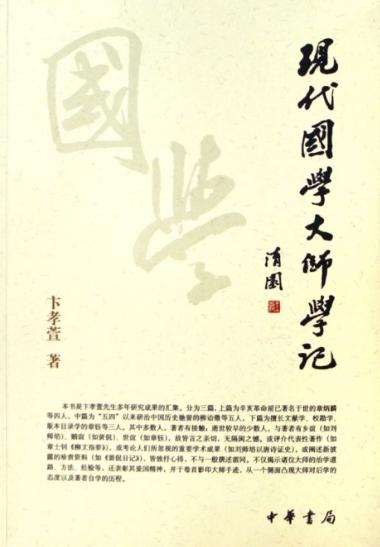 國學
現代國學大師學記
清園
卞孝萱 著
本书是卞孝萱先生多年研究成果的汇集，分为三篇，上篇为辛亥革命前已著名于世的章炳麟
等四人，中篇为“五四”以来研治中国历史驰誉的柳诒徵等五人，下篇为擅长文献学、校勘学、
版本目录学的章钰等三人，其中多数人，著者有接触，逝世较早的少数人，与著者有乡谊（如刘
师培）、姻谊（如黄侃）、世谊（如章钰），故皆言之亲切，无隔阂之憾。或评介代表性著作（如
章士钊《柳文指要》），或考论人们所忽视的重要学术成果（如刘师培以唐诗证史），或阐述新披
露的珍贵资料（如《黄侃日记》），皆独抒心得，不与一般撰述雷同。不仅揭示诸位大师的治学道
路、方法、经验等，还表彰其爱国精神，并于卷首影印大师手迹，从一个侧面凸现大师对后学的
态度以及著者自学的历程。
中華書局